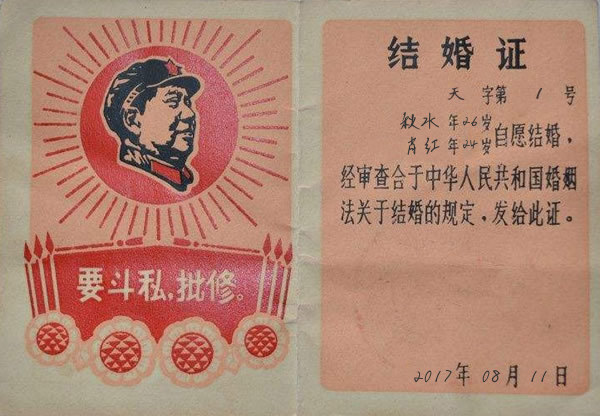 要斗私,批修。
结婚证
天 字第 1 号
秋水 年26岁
肖红 年24岁 自愿结婚，
经审查合于中华人民共和国婚姻
法关于结婚的规定，发给此证。
2017年 08月 11日